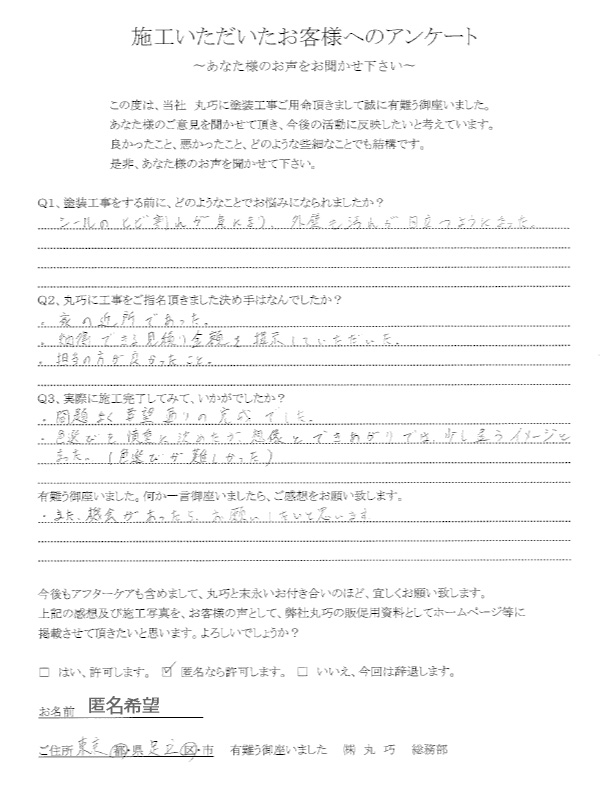 施工いただいたお客様へのアンケート
～あなた様のお声をお聞かせ下さい～
この度は、当社 丸巧に塗装工事ご用命頂きまして誠に有難う御座いました。
あなた様のご意見を聞かせて頂き、今後の活動に反映したいと考えています。
良かったこと、悪かったこと、どのような些細なことでも結構です。
是非、あなた様のお声を聞かせて下さい。
Q1、塗装工事をする前に、どのようなことでお悩みになられましたか？
シールのひび割れが気になり、外壁も汚れが目立つようになった。
Q2、丸巧に工事をご指名頂きました決め手はなんでしたか？
・家の近所であった。
・納得できる見積り金額を提示していただいた。
・担当の方が良かったこと。
Q3、実際に施工完了してみて、いかがでしたか？
・問題なく要望通りの完成でした。
・色選びを慎重に決めたが想像とできあがりでは、少し違うイメージと
なった。(色選びが難しかった)
有難う御座いました。何か一言御座いましたら、ご感想をお願い致します。
・また、機会があったら、お願いしたいと思います
今後もアフターケアも含めまして、丸巧と末永いお付き合いのほど、宜しくお願い致します。
上記の感想及び施工写真を、お客様の声として、弊社丸巧の販促用資料としてホームページ等に
掲載させて頂きたいと思います。よろしいでしょうか？
□ はい、許可します。 ☑ 匿名なら許可します。 □ いいえ、今回は辞退します。
お名前 匿名希望
ご住所 東京 都・県 足立 区・市 有難う御座いました ㈱ 丸 巧 総務部